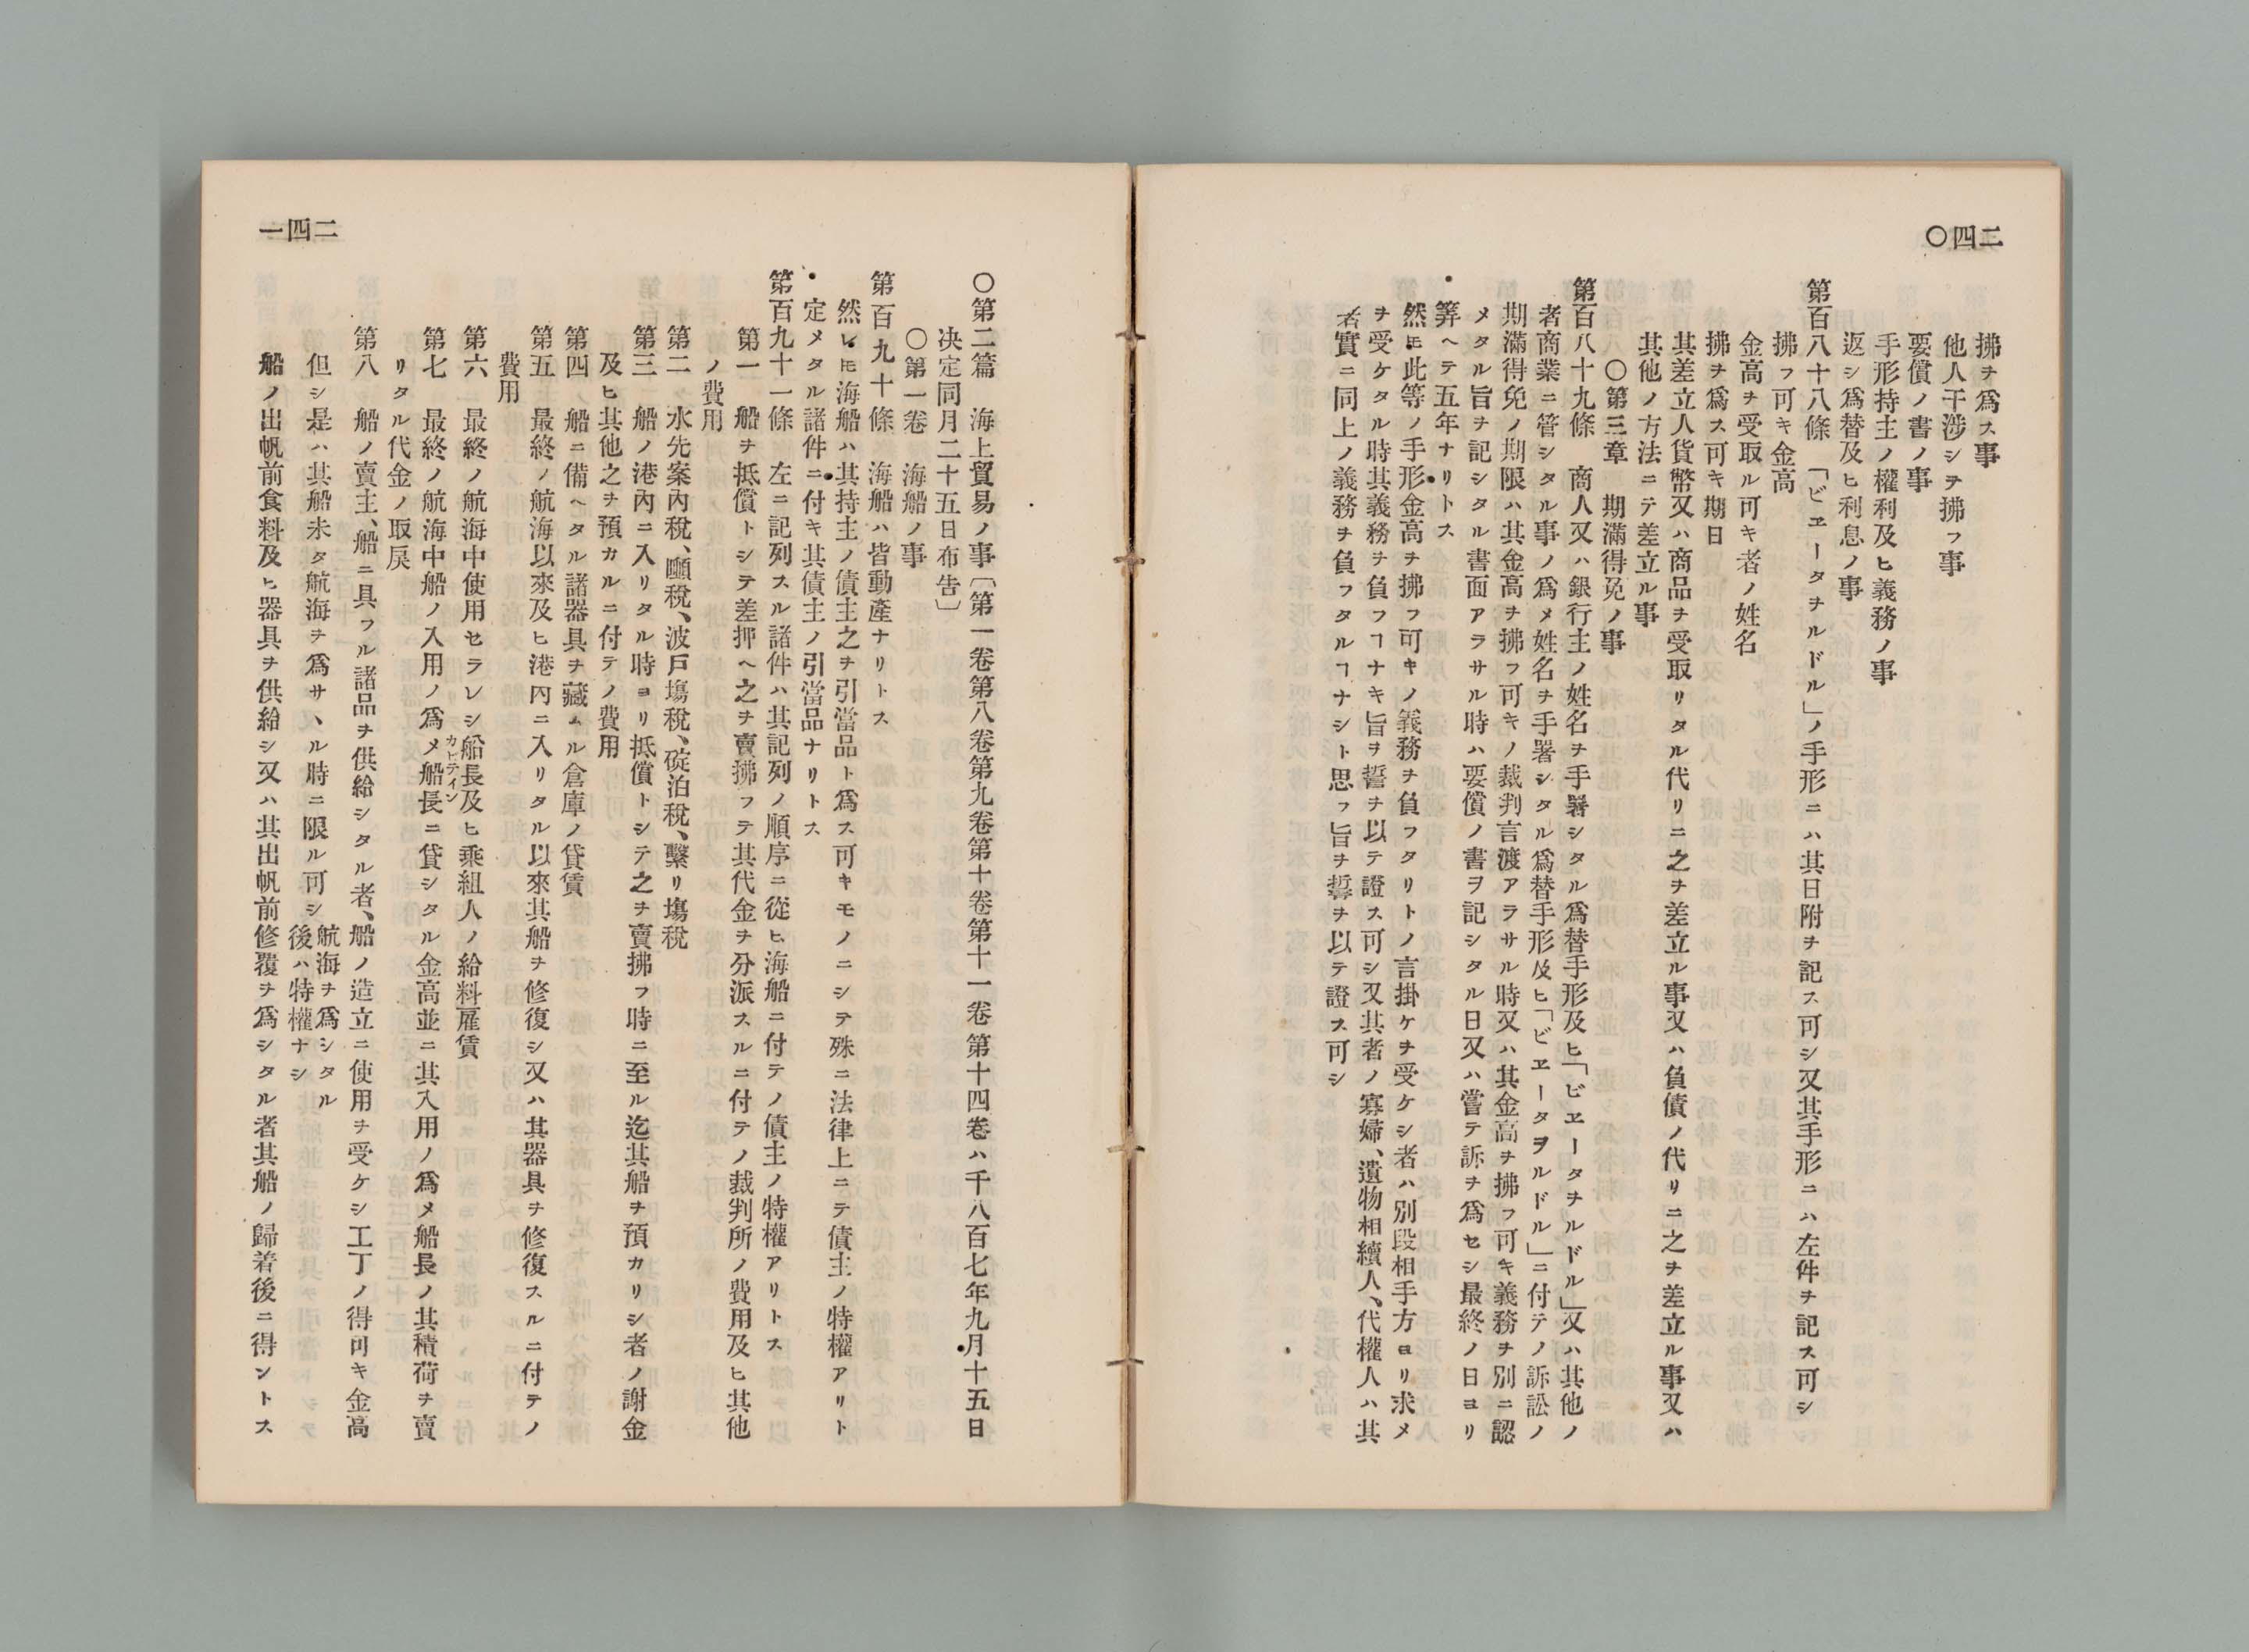 二四〇
拂ヲ爲ス事
他人干渉シテ拂フ事
要償ノ書ノ事
手形持主ノ權利及ヒ義務ノ事
返シ爲替及ヒ利息ノ事
第百八十八條 「ビヱータヲルドル」ノ手形ニハ其日附ヲ記ス可シ又其手形ニハ左件ヲ記ス可シ
拂フ可キ金高
金高ヲ受取ル可キ者ノ姓名
拂ヲ爲ス可キ期日
其差立人貨幣又ハ商品ヲ受取リタル代リニ之ヲ差立ル事又ハ負債ノ代リニ之ヲ差立ル事又ハ
其他ノ方法ニテ差立ル事
〇第三章 期滿得免ノ事
第百八十九條 商人又ハ銀行主ノ姓名ヲ手署シタル爲替手形及ヒ「ビヱータヲルドル」又ハ其他ノ
者商業ニ管シタル事ノ爲メ姓名ヲ手署シタル爲替手形及ヒ「ビヱータヲルドル」ニ付テノ訴訟ノ
期滿得免ノ期限ハ其金高ヲ拂フ可キノ裁判言渡アラサル時又ハ其金高ヲ拂フ可キ義務ヲ別ニ認
メタル旨ヲ記シタル書面アラサル時ハ要償ノ書ヲ記シタル日又ハ嘗テ訴ヲ爲セシ最終ノ日ヨリ
算ヘテ五年ナリトス
然𪜈此等ノ手形金高ヲ拂フ可キノ義務ヲ負フタリトノ言掛ケヲ受ケシ者ハ別段相手方ヨリ求メ
ヲ受ケタル時其義務ヲ負フヿナキ旨ヲ誓ヲ以テ證ス可シ又其者ノ寡婦、遺物相續人、代權人ハ其
者實ニ同上ノ義務ヲ負フタルヿナシト思フ旨ヲ誓ヲ以テ證ス可シ
二四一
〇第二篇 海上貿易ノ事〔第一卷第八卷第九卷第十卷第十一卷第十四卷ハ千八百七年九月十五日
決定同月二十五日布告〕
〇第一卷 海船ノ事
第百九十條 海船ハ皆動産ナリトス
然レ𪜈海船ハ其持主ノ債主之ヲ引當品ト爲ス可キモノニシテ殊ニ法律上ニテ債主ノ特權アリト
定メタル諸件ニ付キ其債主ノ引當品ナリトス
第百九十一條 左ニ記列スル諸件ハ其記列ノ順序ニ從ヒ海船ニ付テノ債主ノ特權アリトス
第一 船ヲ抵償トシテ差押ヘ之ヲ賣拂フテ其代金ヲ分派スルニ付テノ裁判所ノ費用及ヒ其他
ノ費用
第二 水先案內稅、噸稅、波戸塲稅、碇泊稅、繫リ塲稅
第三 船ノ港內ニ入リタル時ヨリ抵償トシテ之ヲ賣拂フ時ニ至ル迄其船ヲ預カリシ者ノ謝金
及ヒ其他之ヲ預カルニ付テノ費用
第四 船ニ備ヘタル諸器具ヲ藏ムル倉庫ノ貸賃
第五 最終ノ航海以來及ヒ港內ニ入リタル以來其船ヲ修復シ又ハ其器具ヲ修復スルニ付テノ
費用
第六 最終ノ航海中使用セラレシ船長及ヒ乘組人ノ給料雇賃
カピテイン
第七 最終ノ航海中船ノ入用ノ爲メ船長ニ貸シタル金高並ニ其入用ノ爲メ船長ノ其積荷ヲ賣
リタル代金ノ取戾
第八 船ノ賣主、船ニ具フル諸品ヲ供給シタル者、船ノ造立ニ使用ヲ受ケシ工丁ノ得可キ金高
但シ是ハ其船未タ航海ヲ爲サヽル時ニ限ル可シ 航海ヲ爲シタル
後ハ特權ナシ
船ノ出帆前食料及ヒ器具ヲ供給シ又ハ其出帆前修覆ヲ爲シタル者其船ノ歸着後ニ得ントス